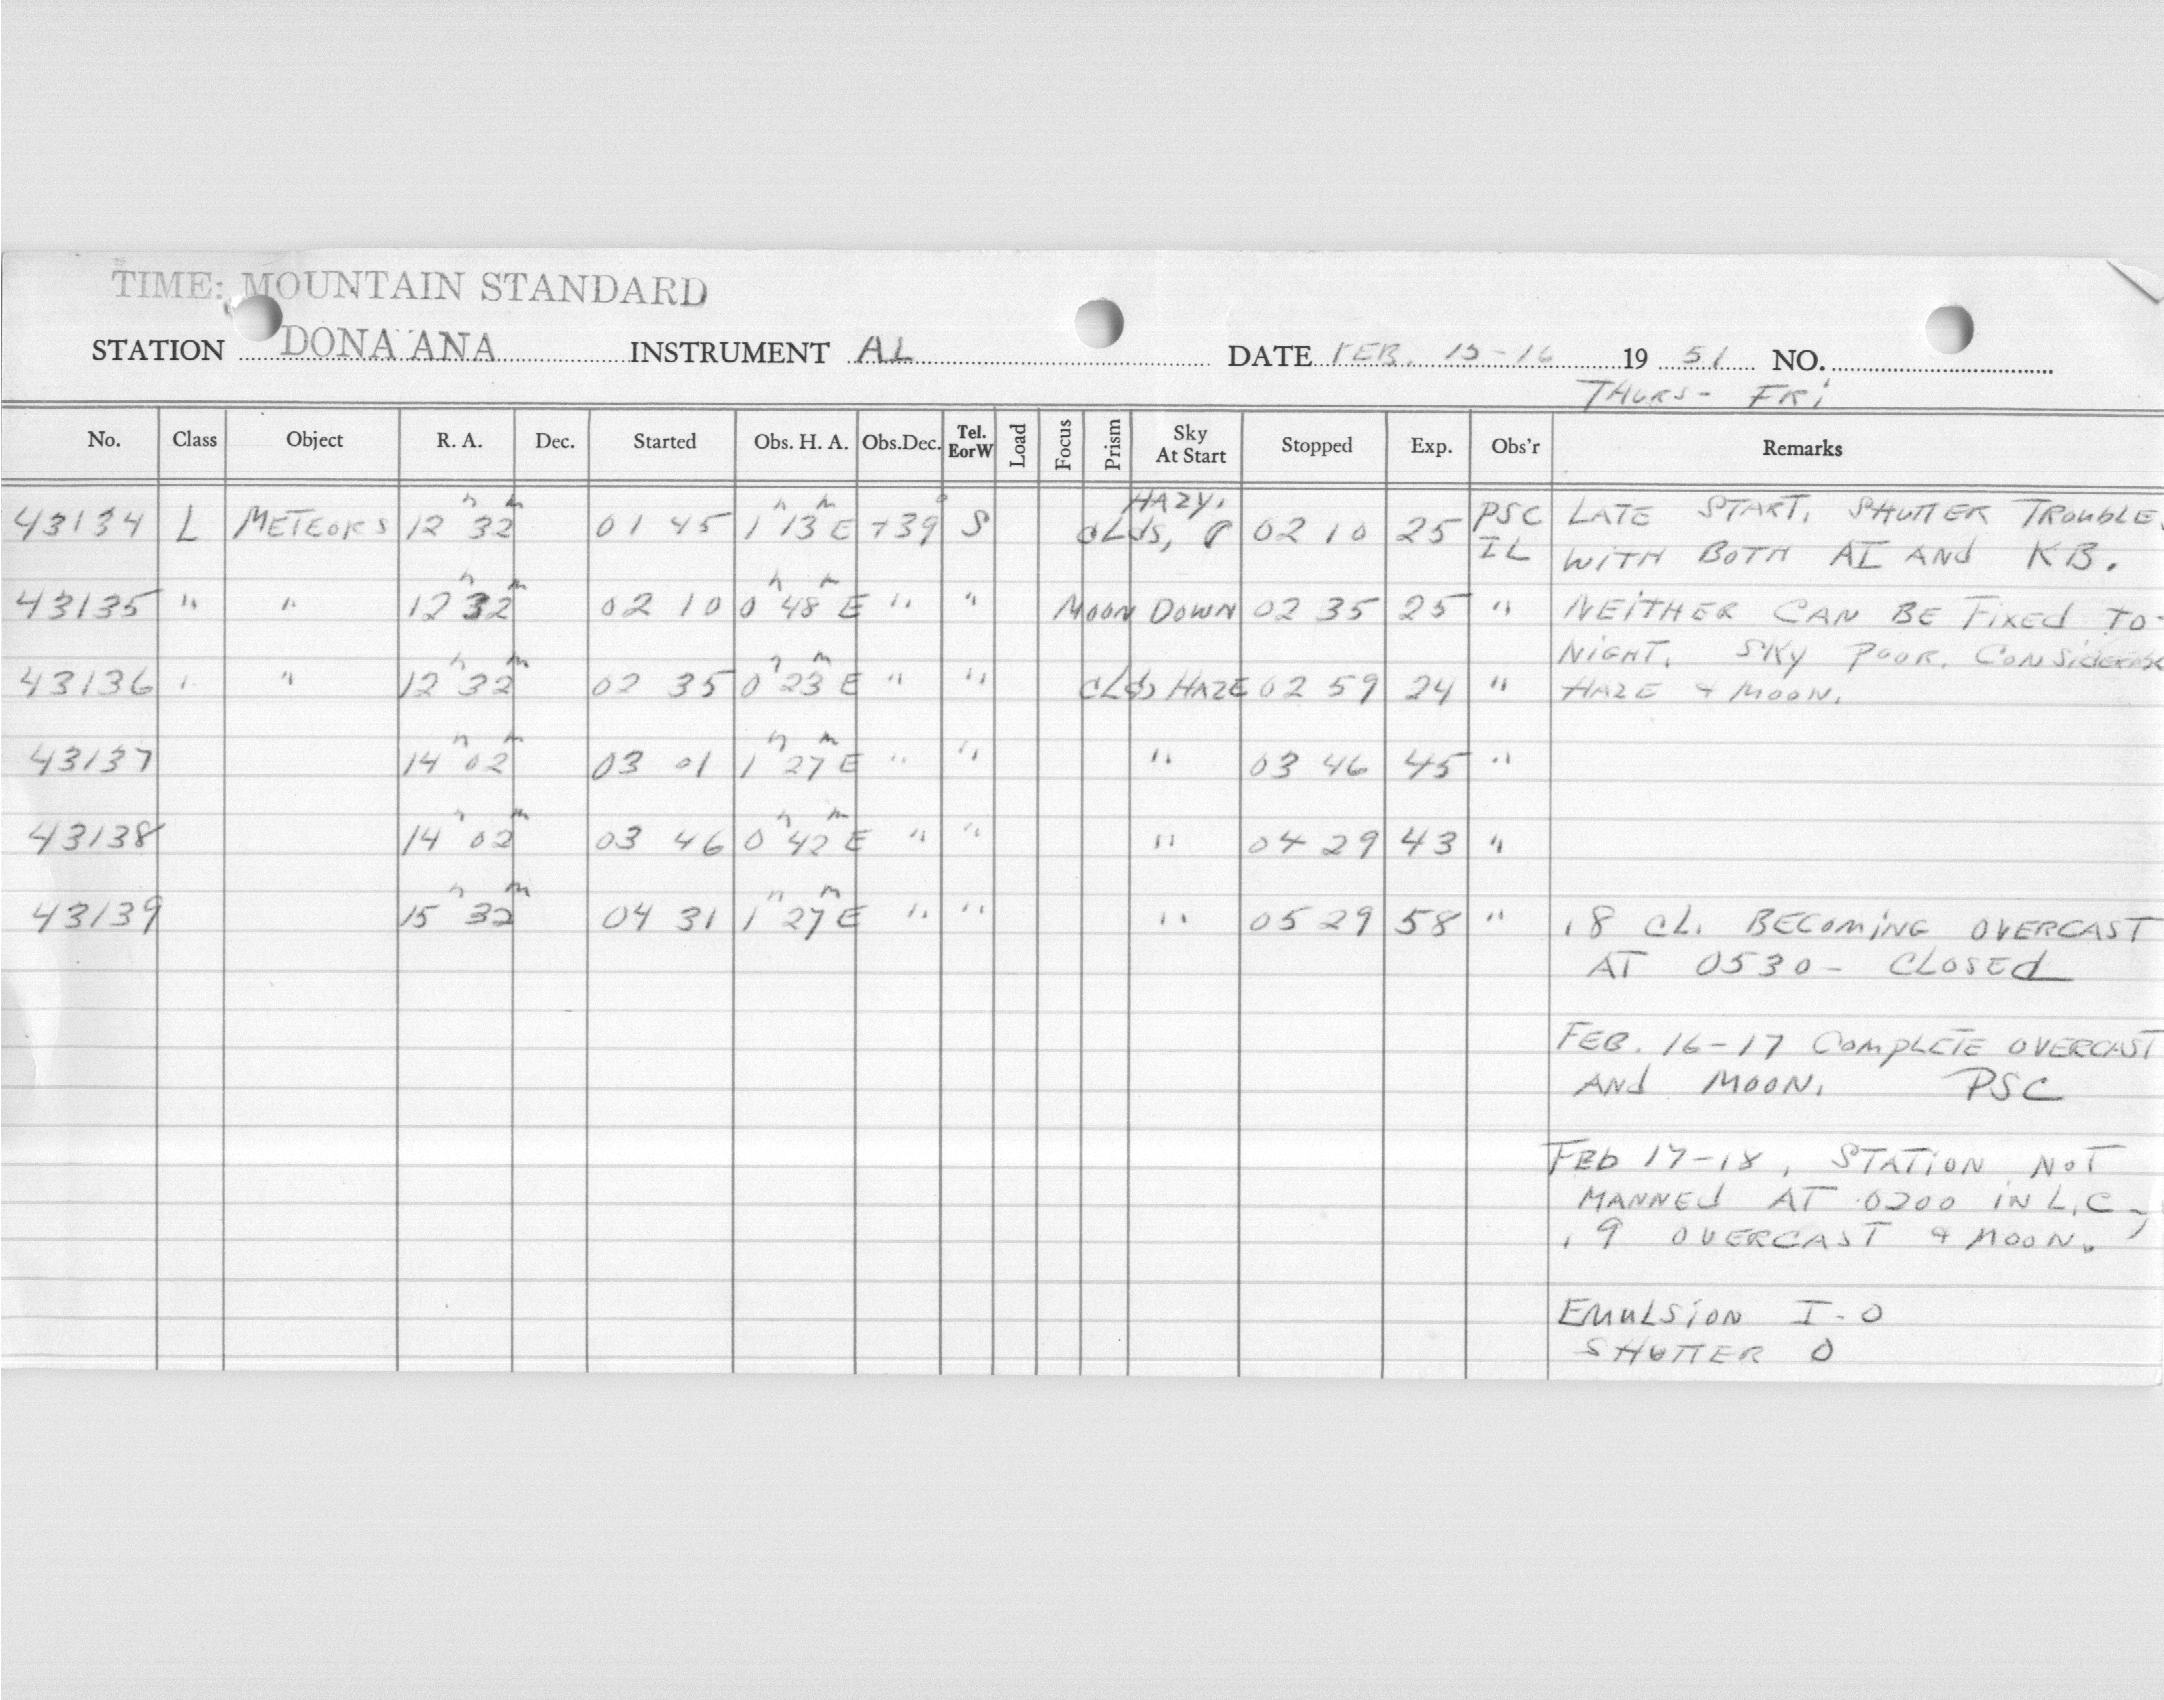 TIME: MOUNTAIN STANDARD
STATION DONA ANA INSTRUMENT AL DATE FEB. 15-16 1951 NO.
THURS- FRI
No. Class Object R. A. Dec. Started Obs. H. A. Obs.Dec. Tel. EorW Load Focus Prism Sky At Start Stopped Exp. Obs'r Remarks
43134 L METEORS 12h 32m 01 45 1h 13m E +39° S HAZY, CLds, 02 10 25 PSC IL LATE START. SHUTTER TROUBLE
WITH BOTH AI ANd KB.
43135 " " 12h 32m 02 10 0h 48m E " " MOON DOWN 02 35 25 " NEITHER CAN BE FixEd TO-
NIGHT. SKy POOR. CONSIDERABLE
43136 " " 12h 32m 02 35 0h 23m E " " CLds HAZE 02 59 24 " HAZE & MOON.
43137 14h 02m 03 01 1h 27m E " " " 03 46 45 "
43138 14h 02m 03 46 0h 42m E " " " 04 29 43 "
43139 15h 32m 04 31 1h 27m E " " " 05 29 58 " .8 CL. BECOMING OVERCAST
AT 0530- CLOSEd
FEB. 16-17 COMPLETE OVERCAST
ANd MOON. PSC
FEb 17-18, STATION NOT
MANNEd AT 0200 IN L.C.,
.9 OVERCAST & MOON.
EMULSION I-O
SHUTTER O